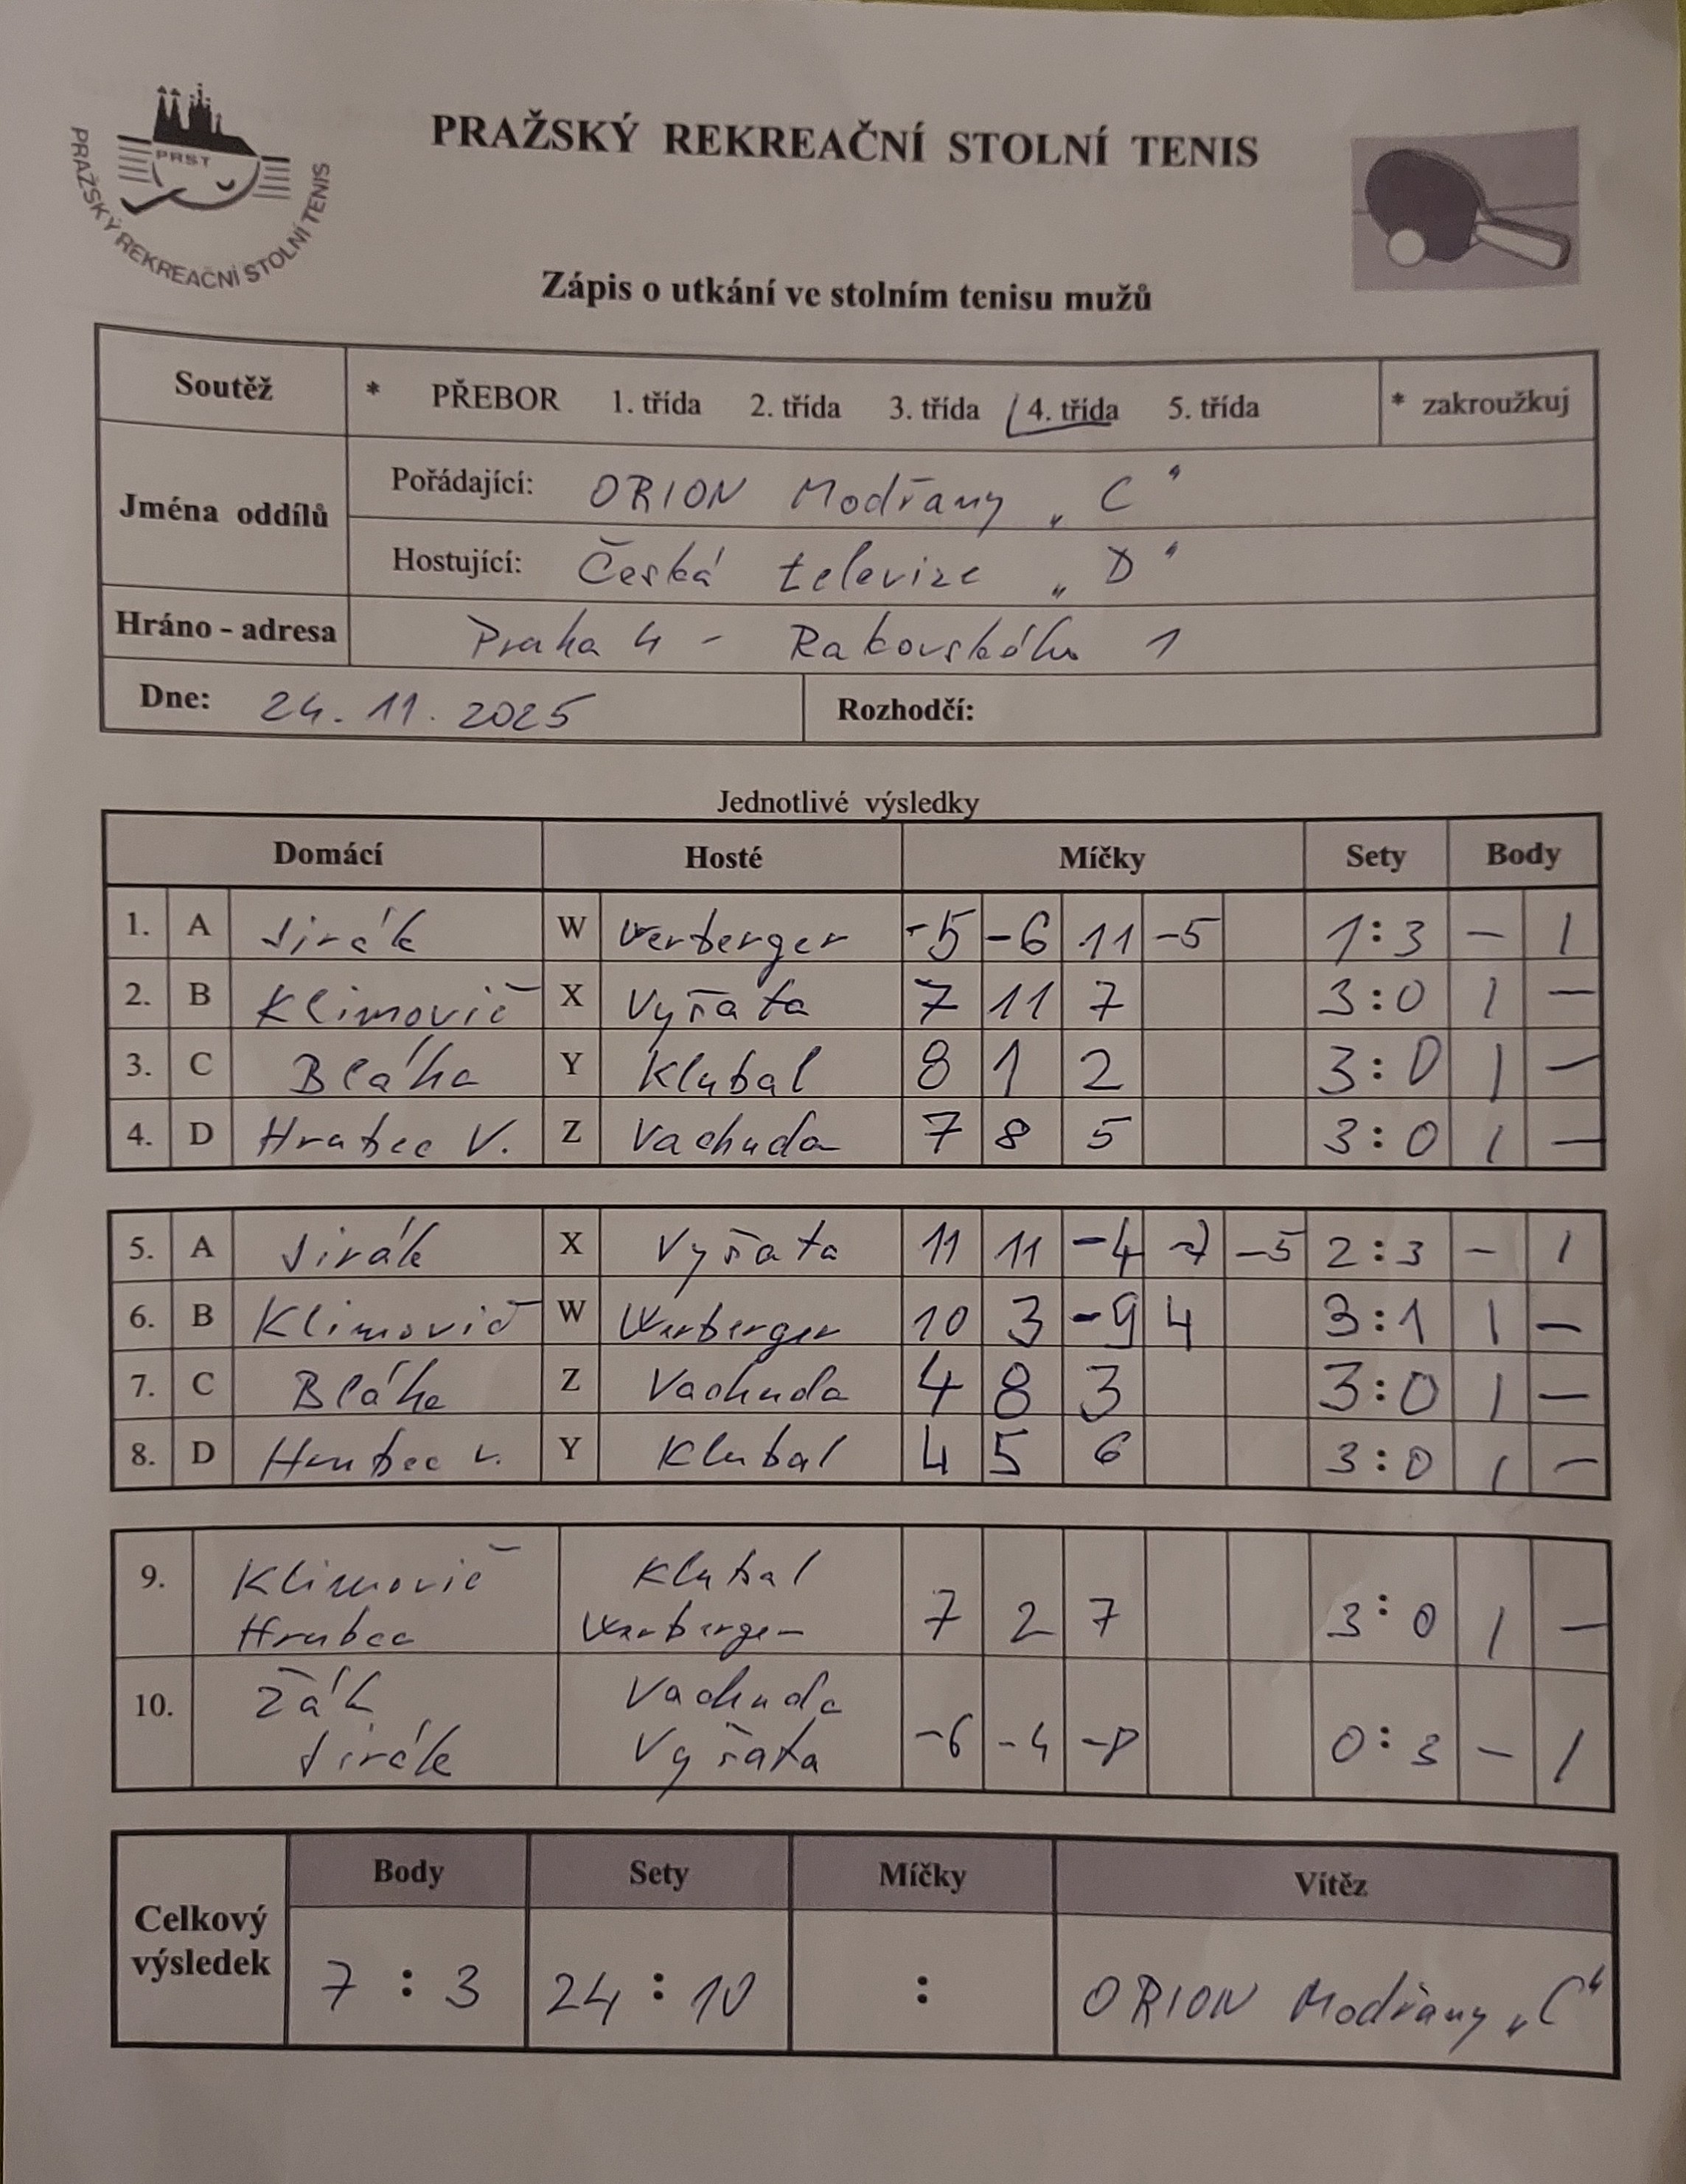 PRST
PRAŽSKÝ REKREAČNÍ STOLNÍ TENIS
PRAŽSKÝ REKREAČNÍ STOLNÍ TENIS
Zápis o utkání ve stolním tenisu mužů
Soutěž * PŘEBOR 1. třída 2. třída 3. třída 4. třída 5. třída * zakroužkuj
Jména oddílů
Pořádající: ORION Modřany „C"
Hostující: Česká televize „D"
Hráno - adresa Praha 4 - Rakovského 1
Dne: 24. 11. 2025 Rozhodčí:
Jednotlivé výsledky
Domácí Hosté Míčky Sety Body
1. A Jirák W Werberger -5 -6 11 -5 1:3 - 1
2. B Klimovič X Vyšata 7 11 7 3:0 1 -
3. C Bláha Y Klubal 8 1 2 3:0 1 -
4. D Hrabec V. Z Vachuda 7 8 5 3:0 1 -
5. A Jirák X Vyšata 11 11 -4 -7 -5 2:3 - 1
6. B Klimovič W Werberger 10 3 -9 4 3:1 1 -
7. C Bláha Z Vachuda 4 8 3 3:0 1 -
8. D Hrabec V. Y Klubal 4 5 6 3:0 1 -
9. Klimovič Klubal
Hrabec Werberger 7 2 7 3:0 1 -
10. Žák Vachuda
Jirák Vyšata -6 -4 -8 0:3 - 1
Celkový výsledek
Body Sety Míčky Vítěz
7 : 3 24 : 10 : ORION Modřany „C"